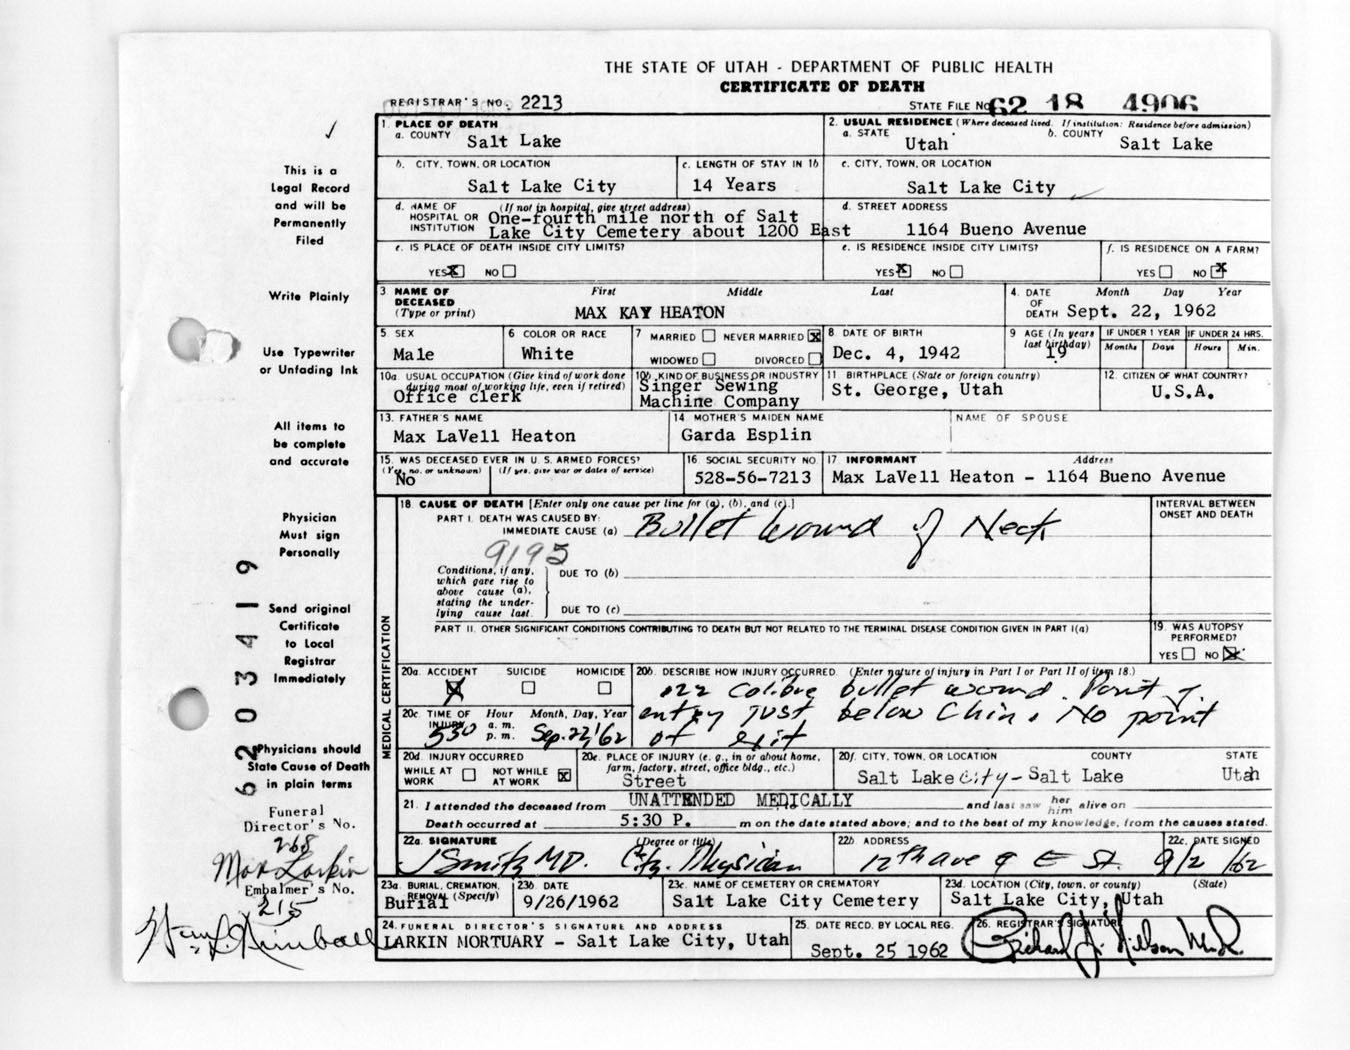 THE STATE OF UTAH - DEPARTMENT OF PUBLIC HEALTH
CERTIFICATE OF DEATH
REGISTRAR'S NO. 2213
STATE FILE NO. 62 18 4906
1. PLACE OF DEATH
a. COUNTY Salt Lake
2. USUAL RESIDENCE (Where deceased lived. If institution: Residence before admission)
a. STATE Utah b. COUNTY Salt Lake
b. CITY, TOWN, OR LOCATION Salt Lake City
c. LENGTH OF STAY IN 1b 14 Years
c. CITY, TOWN, OR LOCATION Salt Lake City
d. NAME OF HOSPITAL OR INSTITUTION (If not in hospital, give street address)
One-fourth mile north of Salt
Lake City Cemetery about 1200 East
d. STREET ADDRESS
1164 Bueno Avenue
e. IS PLACE OF DEATH INSIDE CITY LIMITS?
YES X NO
e. IS RESIDENCE INSIDE CITY LIMITS?
YES X NO
f. IS RESIDENCE ON A FARM?
YES NO X
3 NAME OF DECEASED (Type or print) First Middle Last
MAX KAY HEATON
4. DATE OF DEATH Month Day Year
Sept. 22, 1962
5 SEX Male
6 COLOR OR RACE White
7 MARRIED NEVER MARRIED X
WIDOWED DIVORCED
8 DATE OF BIRTH Dec. 4, 1942
9 AGE (In years last birthday) 19
IF UNDER 1 YEAR Months Days
IF UNDER 24 HRS. Hours Min.
10a. USUAL OCCUPATION (Give kind of work done during most of working life, even if retired)
Office clerk
10b. KIND OF BUSINESS OR INDUSTRY
Singer Sewing
Machine Company
11 BIRTHPLACE (State or foreign country)
St. George, Utah
12 CITIZEN OF WHAT COUNTRY?
U.S.A.
13. FATHER'S NAME
Max LaVell Heaton
14 MOTHER'S MAIDEN NAME
Garda Esplin
NAME OF SPOUSE
15. WAS DECEASED EVER IN U. S. ARMED FORCES?
(Yes, no, or unknown) (If yes, give war or dates of service)
No
16 SOCIAL SECURITY NO.
528-56-7213
17 INFORMANT Address
Max LaVell Heaton - 1164 Bueno Avenue
18. CAUSE OF DEATH [Enter only one cause per line for (a), (b), and (c).]
PART I. DEATH WAS CAUSED BY:
IMMEDIATE CAUSE (a) Bullet wound of Neck
INTERVAL BETWEEN ONSET AND DEATH
9195
Conditions, if any, which gave rise to above cause (a), stating the underlying cause last.
DUE TO (b)
DUE TO (c)
PART II. OTHER SIGNIFICANT CONDITIONS CONTRIBUTING TO DEATH BUT NOT RELATED TO THE TERMINAL DISEASE CONDITION GIVEN IN PART I(a)
19. WAS AUTOPSY PERFORMED?
YES NO X
MEDICAL CERTIFICATION
20a. ACCIDENT X SUICIDE HOMICIDE
20b. DESCRIBE HOW INJURY OCCURRED. (Enter nature of injury in Part I or Part II of item 18.)
.22 Calibre bullet wound. Point of
entry just below Chin. No point
of exit
20c. TIME OF INJURY Hour a.m. p.m. Month, Day, Year
530 Sep. 22, '62
20d. INJURY OCCURRED
WHILE AT WORK NOT WHILE AT WORK X
20e. PLACE OF INJURY (e. g., in or about home, farm, factory, street, office bldg., etc.)
Street
20f. CITY, TOWN, OR LOCATION COUNTY STATE
Salt Lake City - Salt Lake Utah
21. I attended the deceased from UNATTENDED MEDICALLY and last saw her him alive on
Death occurred at 5:30 P. m on the date stated above; and to the best of my knowledge, from the causes stated.
22a. SIGNATURE (Degree or title)
J Smith MD. City Physician
22b ADDRESS
12th ave & E St.
22c. DATE SIGNED
9/2 /62
23a. BURIAL, CREMATION, REMOVAL (Specify)
Burial
23b. DATE
9/26/1962
23c. NAME OF CEMETERY OR CREMATORY
Salt Lake City Cemetery
23d. LOCATION (City, town, or county) (State)
Salt Lake City, Utah
24. FUNERAL DIRECTOR'S SIGNATURE AND ADDRESS
LARKIN MORTUARY - Salt Lake City, Utah
25. DATE RECD. BY LOCAL REG.
Sept. 25 1962
26. REGISTRAR'S SIGNATURE
Richard J. Nilson M.D.
This is a
Legal Record
and will be
Permanently
Filed
Write Plainly
Use Typewriter
or Unfading Ink
All items to
be complete
and accurate
Physician
Must sign
Personally
Send original
Certificate
to Local
Registrar
Immediately
Physicians should
State Cause of Death
in plain terms
62 03419
Funeral
Director's No.
268
Max Larkin
Embalmer's No.
215
Kimball